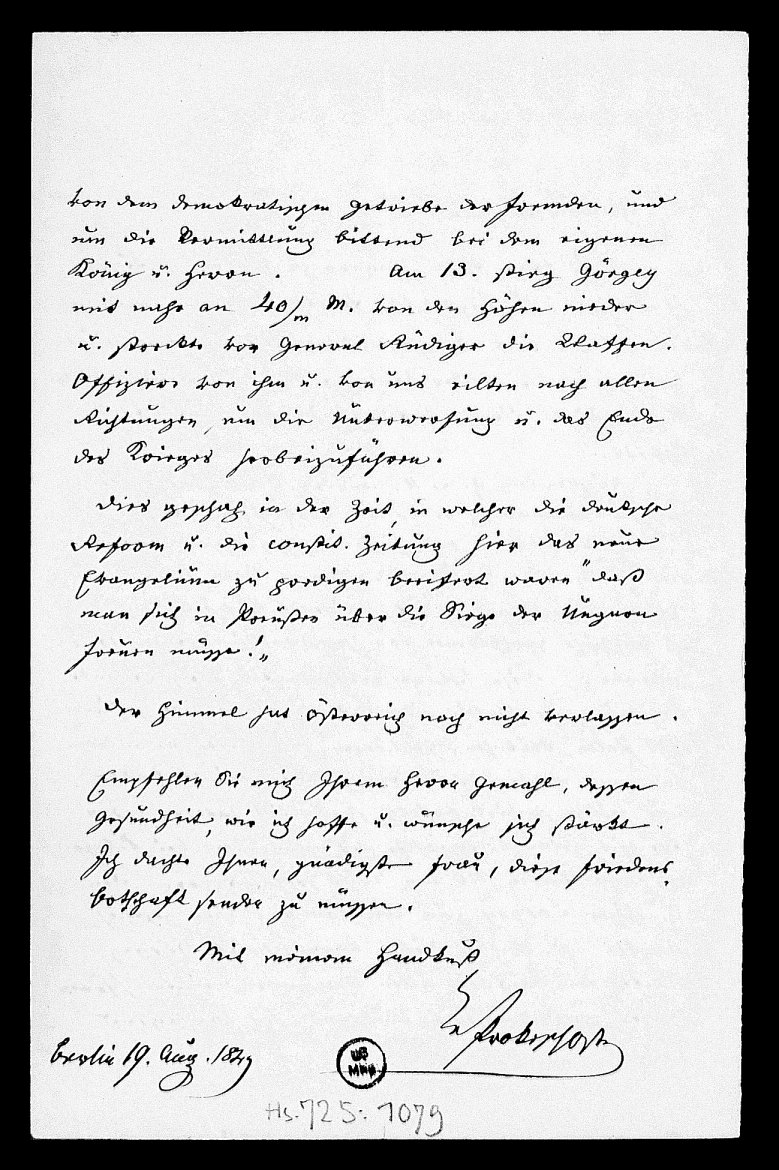 von dem demokratischen Getriebe der Fremden, und
um die Vermittlung bittend bei dem eigenen
König u. Herrn. Am 13. stieg Görgey
mit mehr an 40/m M. von den Höhen nieder
u. streckte vor General Rüdiger die Waffen.
Offiziere von ihm u. von uns eilten nach allen
Richtungen, um die Unterwerfung u. das Ende
des Krieges herbeizuführen.
Dies geschah in der Zeit, in welcher die deutsche
Reform u. die constit. Zeitung hier das neue
Evangelium zu predigen beeifert waren "daß
man sich in Preußen über die Siege der Ungarn
freuen müsse!"
Der Himmel hat Österreich noch nicht verlassen.
Empfehlen Sie mich Ihrem Herrn Gemahl, dessen
Gesundheit, wie ich hoffe u. wünsche sich stärkt.
Ich dachte Ihnen, gnädigste Frau, diese Friedens
botschaft senden zu müssen.
Mit meinem Handkuß
Prokesch Osten
Berlin 19. Aug. 1849
UB
Mün
Hs. 725: 1079